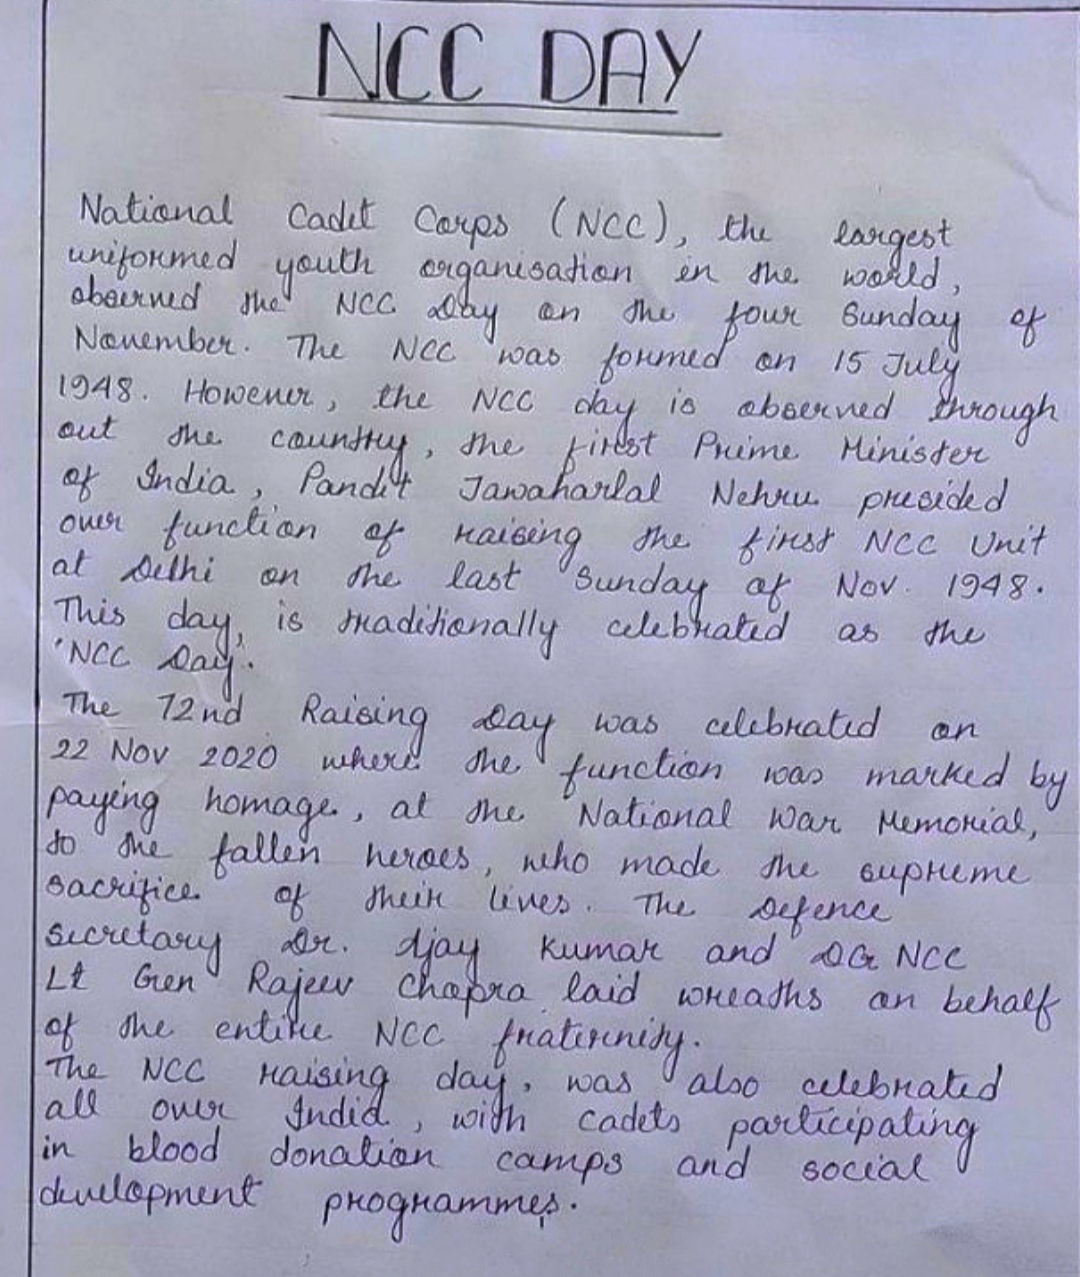 NCC DAY
National Cadet Corps (NCC), the largest
uniformed youth organisation in the world,
observed the NCC Day on the four Sunday of
November. The NCC was formed on 15 July
1948. However, the NCC day is observed through
out the country, the first Prime Minister
of India, Pandit Jawaharlal Nehru presided
over function of raising the first NCC Unit
at Delhi on the last Sunday of Nov. 1948.
This day, is traditionally celebrated as the
'NCC Day'.
The 72nd Raising Day was celebrated on
22 Nov 2020 where the function was marked by
paying homage, at the National War Memorial,
to the fallen heroes, who made the supreme
sacrifice of their lives. The Defence
secretary Dr. Ajay Kumar and DG NCC
Lt Gen Rajeev Chopra laid wreaths on behalf
of the entire NCC fraternity.
The NCC raising day, was also celebrated
all over India, with cadets participating
in blood donation camps and social
development programmes.